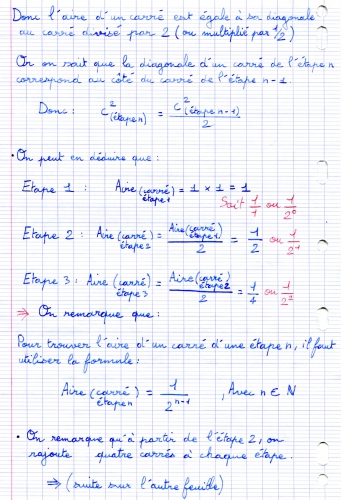 Donc l'aire d'un carré est égale à sa diagonale
au carré divisé par 2 (ou multiplié par 1/2)
Or on sait que la diagonale d'un carré de l'étape n
correspond au côté du carré de l'étape n-1.
Donc : C²(étape n) = C²(étape n-1) / 2
• On peut en déduire que :
Etape 1 : Aire (carré) étape 1 = 1 × 1 = 1
Soit 1/1 ou 1/2⁰
Etape 2 : Aire (carré) étape 2 = Aire (carré) étape 1 / 2 = 1/2 ou 1/2¹
Etape 3 : Aire (carré) étape 3 = Aire (carré) étape 2 / 2 = 1/4 ou 1/2²
⇒ On remarque que :
Pour trouver l'aire d'un carré d'une étape n, il faut
utiliser la formule :
Aire (carré) étape n = 1/2ⁿ⁻¹ , Avec n ∈ ℕ
• On remarque qu'à partir de l'étape 2, on
rajoute quatre carrés à chaque étape.
⇒ (suite sur l'autre feuille)